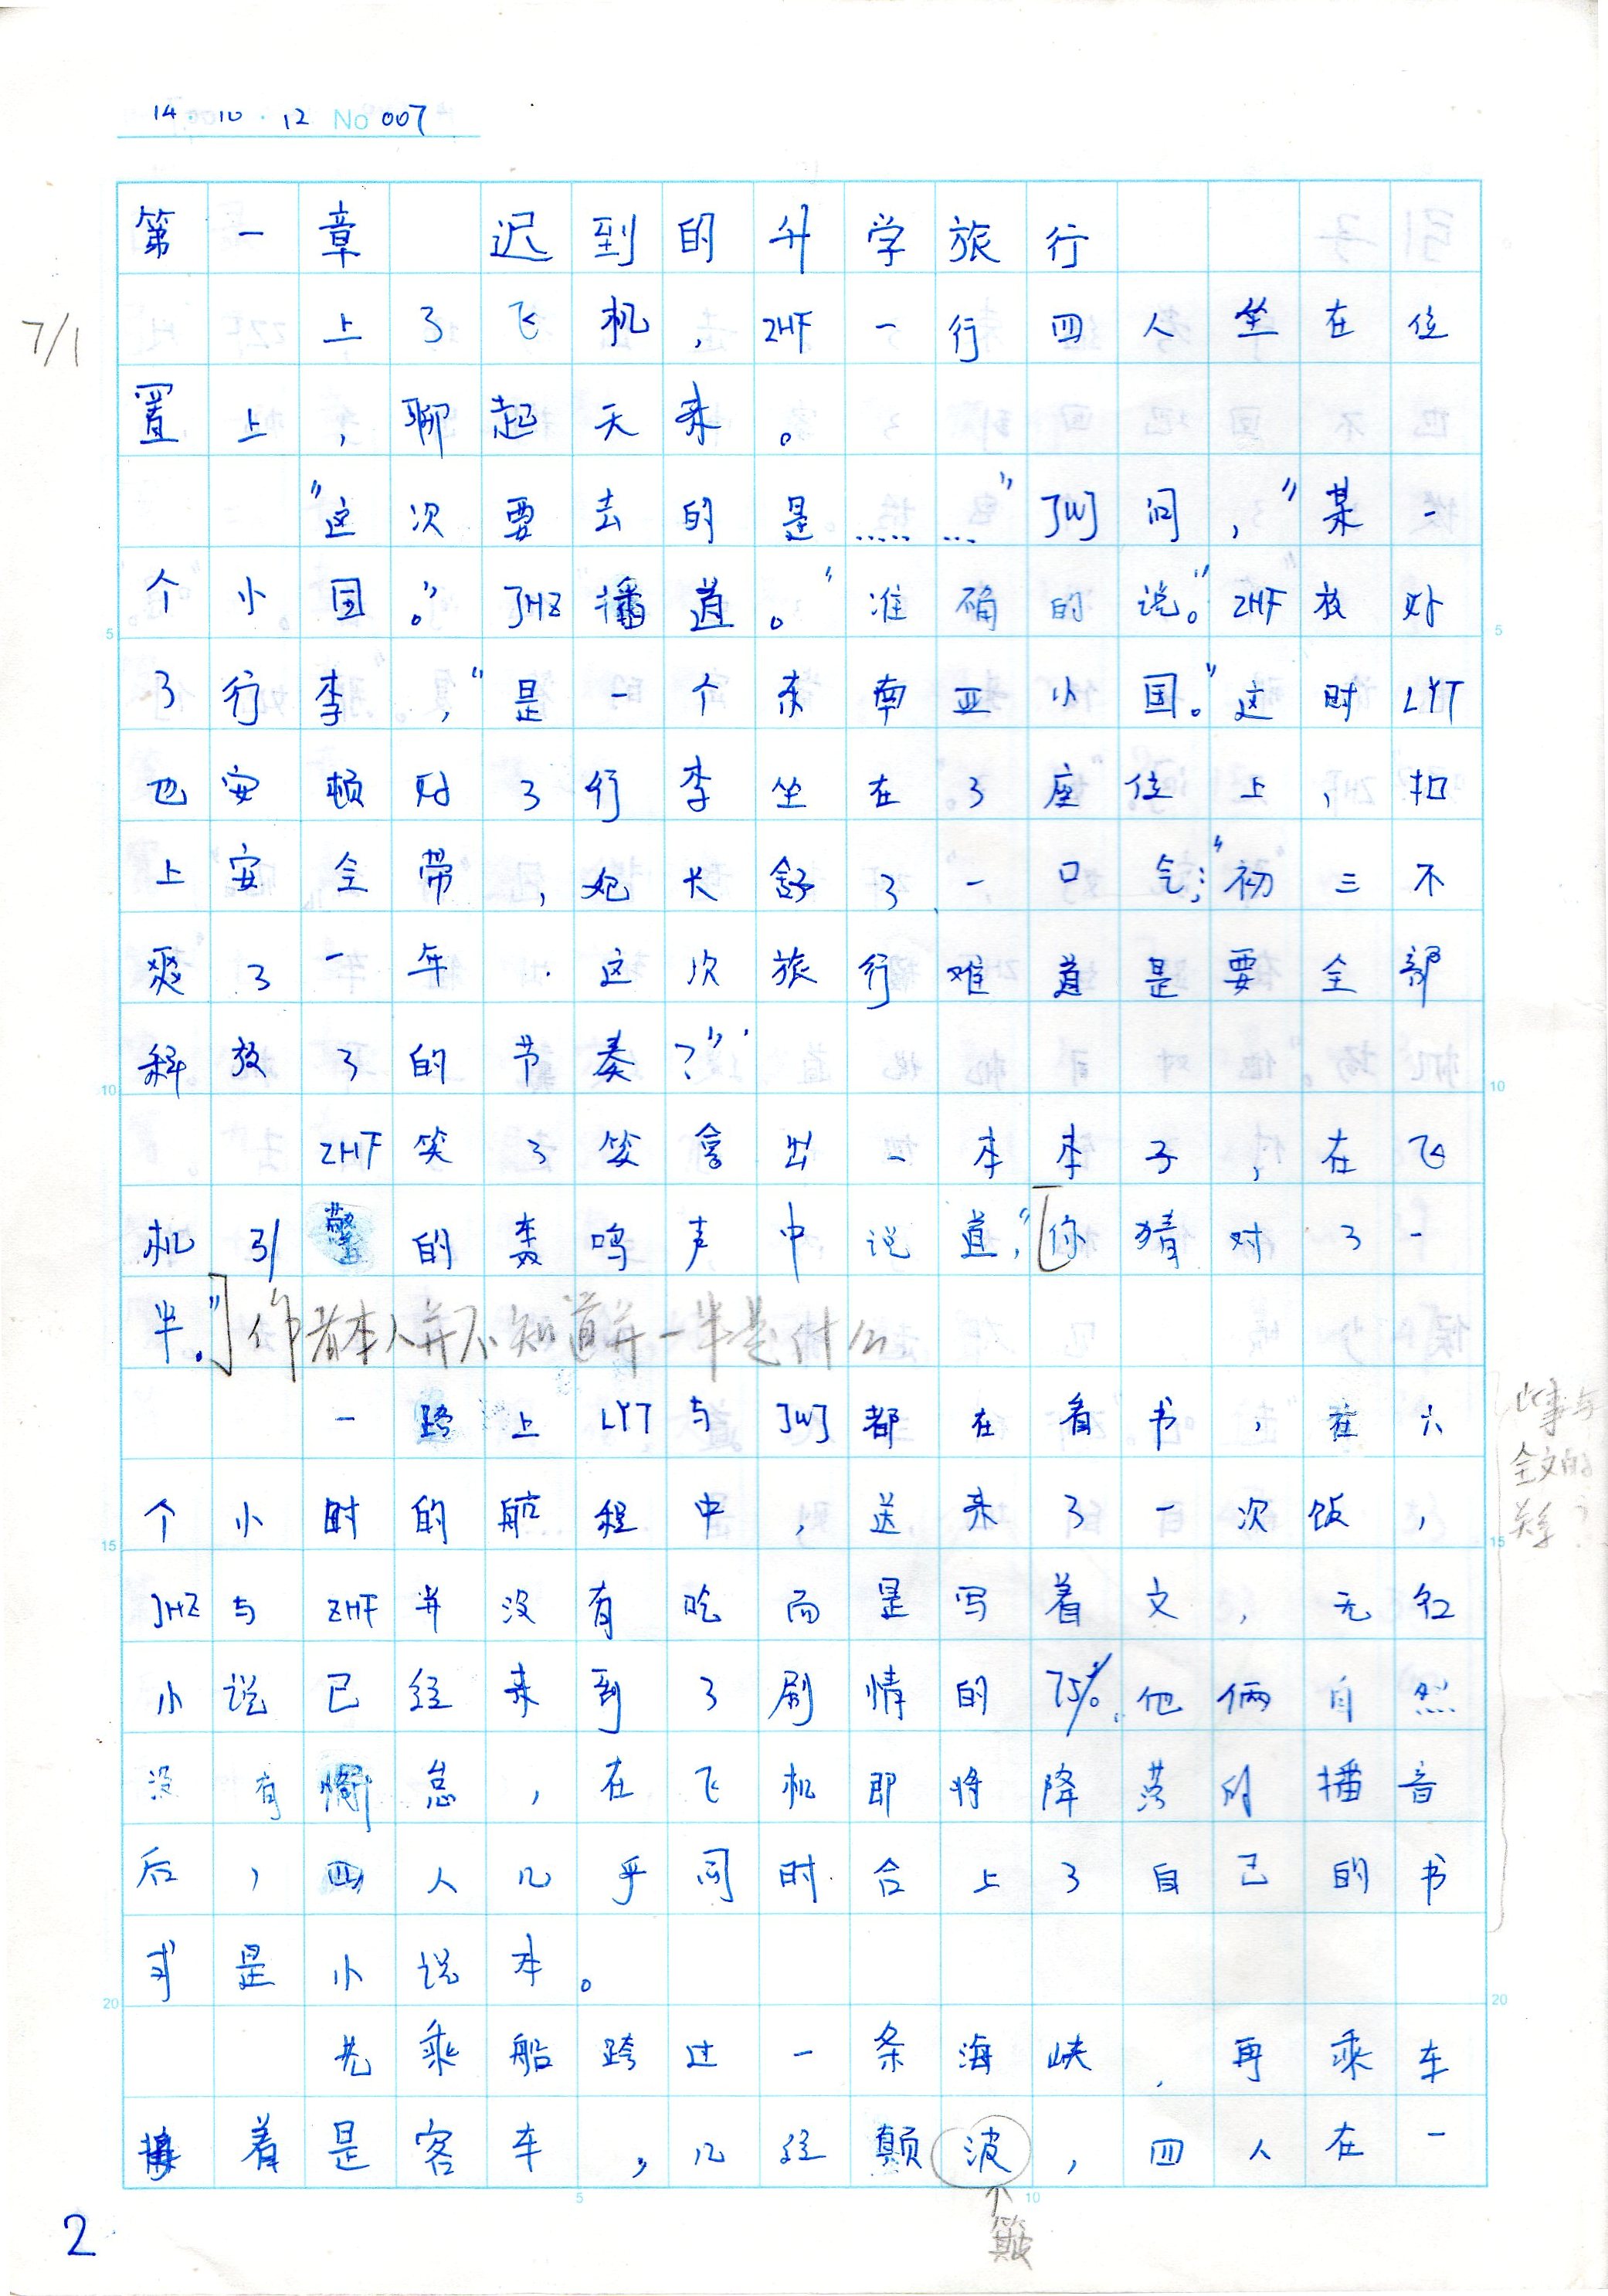 14 · 10 · 12 No 007
第一章 迟到的升学旅行
7/1
上了飞机，ZHF一行四人坐在位
置上，聊起天来。
“这次要去的是……”JWJ问，“某一
个小国。”JHZ播道。“准确的说。”ZHF放好
了行李，“是一个东南亚小国。”这时LYT
也安顿好了行李坐在了座位上，扣
上安全带，她长舒了一口气：“初三不
爽了一年．这次旅行难道是要全部
释放了的节奏？”
ZHF笑了笑拿出一本本子，在飞
机引擎的轰鸣声中说道，“[你猜对了一
半.”]作者本人并不知道并一半是什么
一路上LYT与JWJ都在看书，在六
个小时的航程中，送来了一次饭，
JHZ与ZHF并没有吃而是写着文，无名
小说已经来到了剧情的75%.他俩自然
没有懈怠，在飞机即将降落的播音
后，四人几乎同时合上了自己的书
或是小说本。
此事与
全文的
关系？
先乘船跨过一条海峡．再乘车
接着是客车，几经颠波，四人在一
↑
簸
5 10 15 20
5 10 15 20
5 10
2